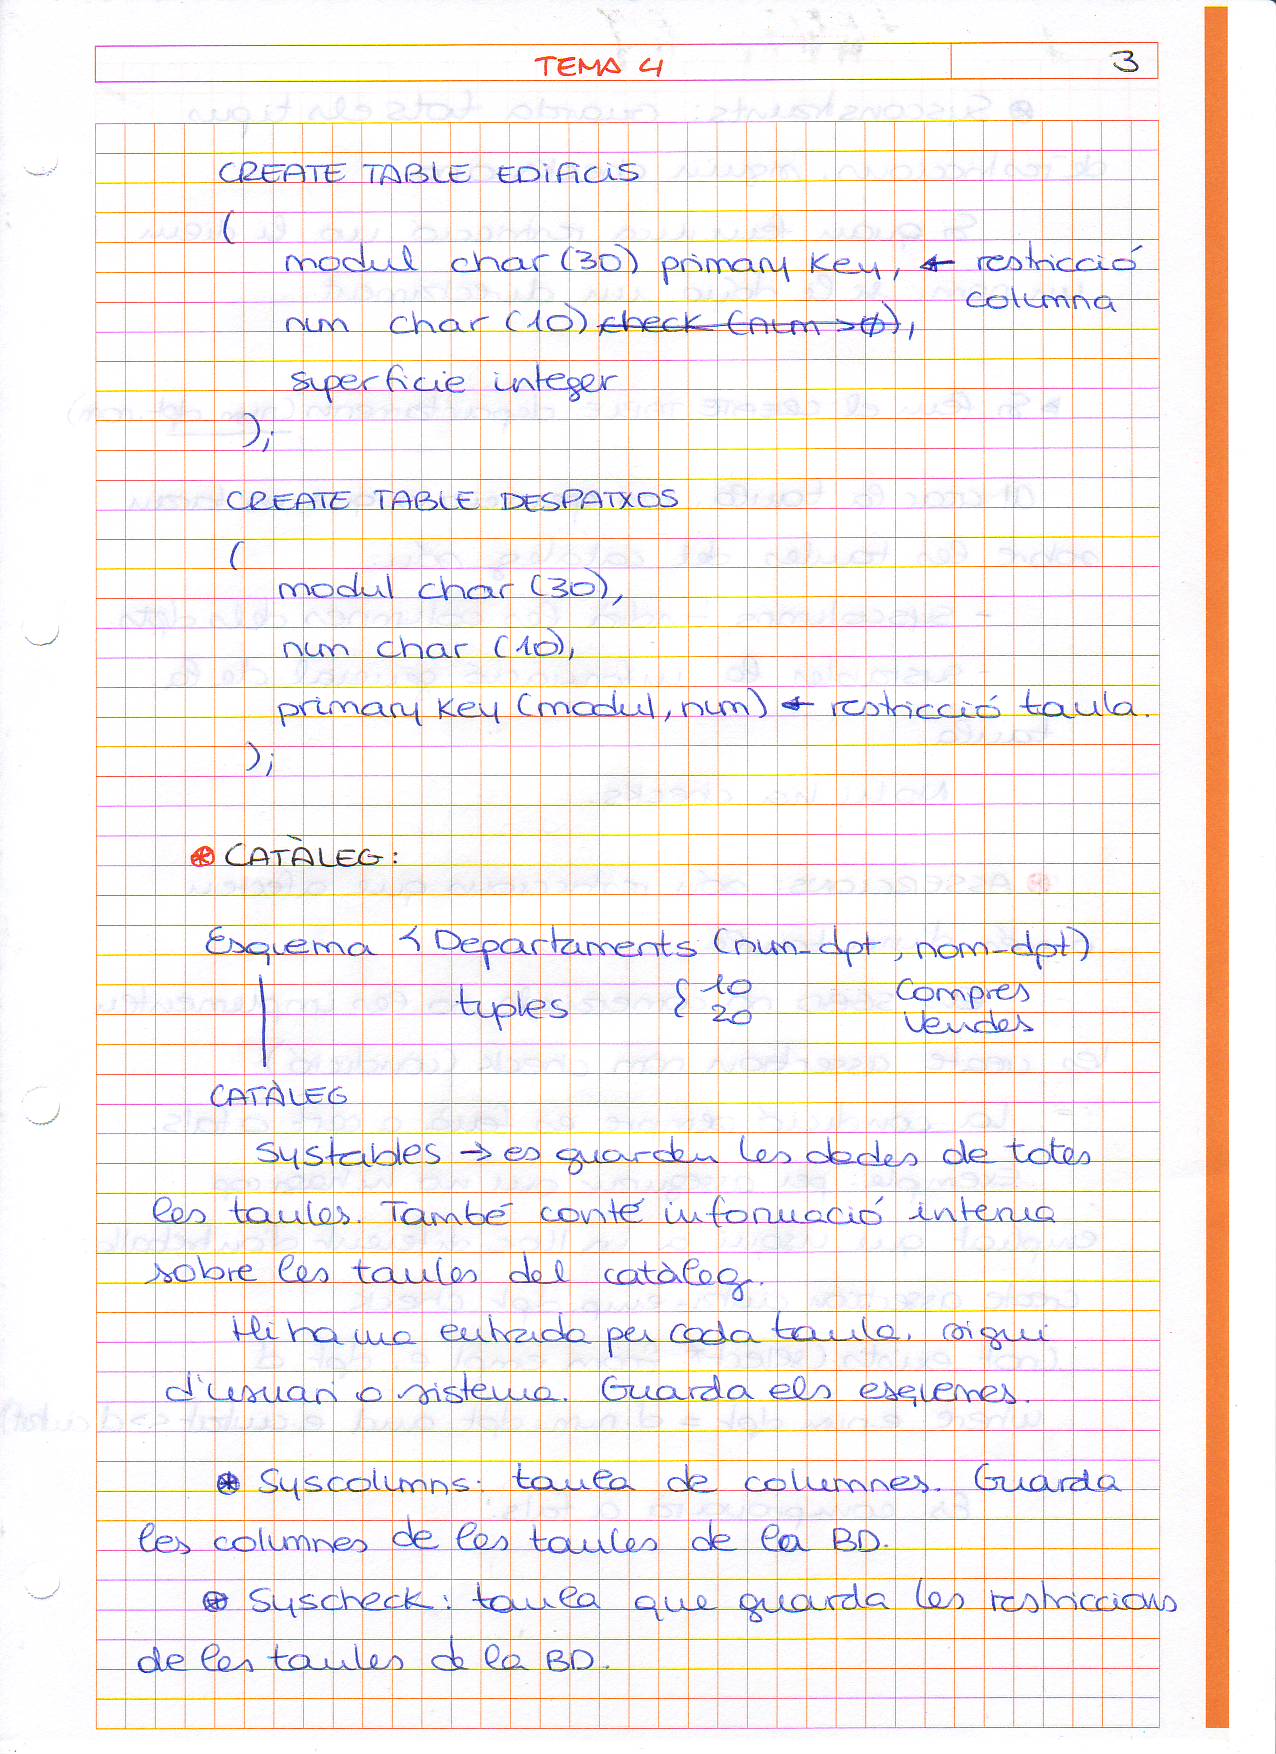 TEMA 4
3
CREATE TABLE EDIFICIS
(
modul char(30) primary key, ← restricció
columna
num char (10) check (num >0),
superficie integer
);
CREATE TABLE DESPATXOS
(
modul char (30),
num char (10),
primary key (modul, num) ← restricció taula.
);
CATÀLEG:
Esquema { Departaments (num-dpt, nom-dpt)
tuples { 10 Compres
20 Vendes
CATÀLEG
Systables → es guarden les dades de totes
les taules. També conté informació interna
sobre les taules del catàleg.
Hi ha una entrada per cada taula, sigui
d'usuari o sistema. Guarda els esqemes.
Syscolumns: taula de columnes. Guarda
les columnes de les taules de la BD.
Syscheck: taula que guarda les restriccions
de les taules d la BD.